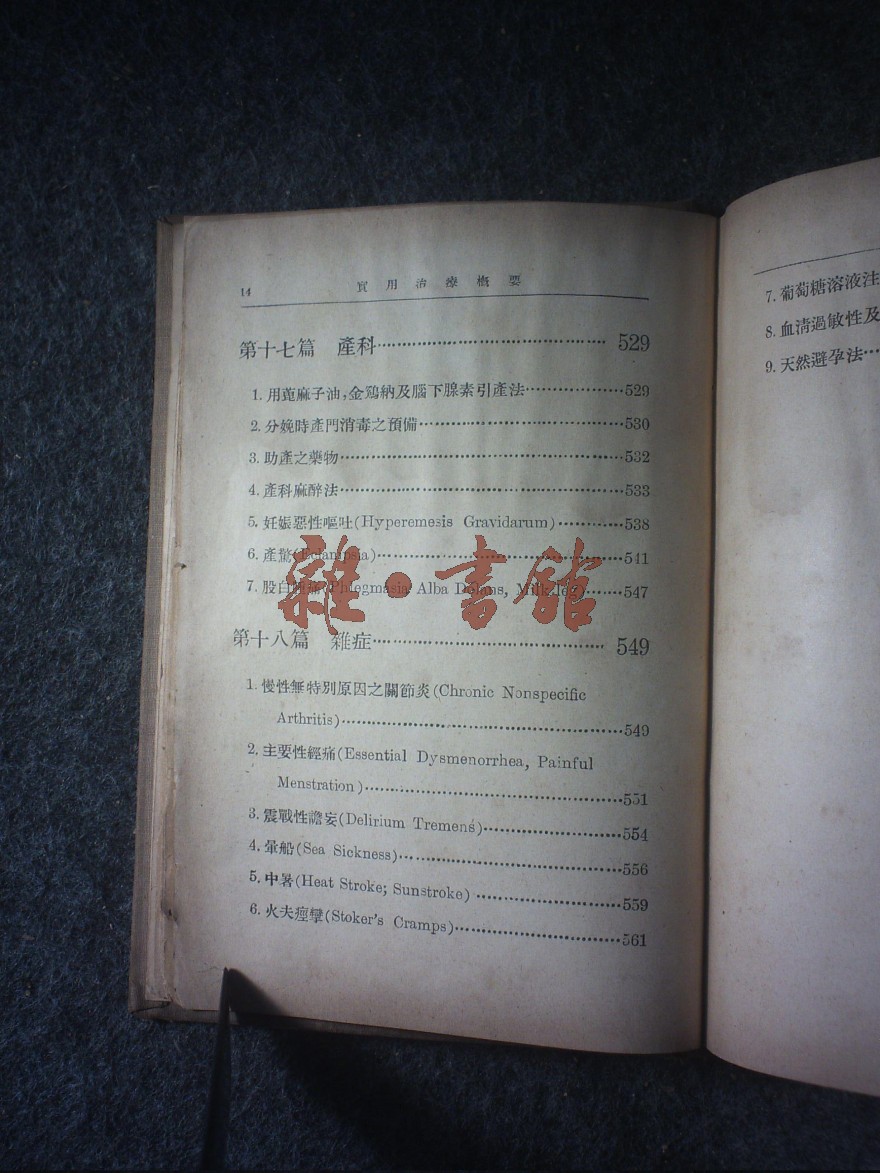 14 實用治療概要
第十七篇 產科 529
1. 用蓖麻子油,金鷄納及腦下腺素引產法 529
2. 分娩時產門消毒之預備 530
3. 助產之藥物 532
4. 產科麻醉法 533
5. 妊娠惡性嘔吐(Hyperemesis Gravidarum) 538
6. 產驚(Eclampsia) 541
7. 股白腫痛(Phlegmasia Alba Dolens, Milk leg) 547
雜·書館
第十八篇 雜症 549
1. 慢性無特別原因之關節炎(Chronic Nonspecific
Arthritis) 549
2. 主要性經痛(Essential Dysmenorrhea, Painful
Menstration) 551
3. 震戰性譫妄(Delirium Tremens) 554
4. 暈船(Sea Sickness) 556
5. 中暑(Heat Stroke; Sunstroke) 559
6. 火夫痙攣(Stoker's Cramps) 561
7. 葡萄糖溶液注
8. 血清過敏性及
9. 天然避孕法